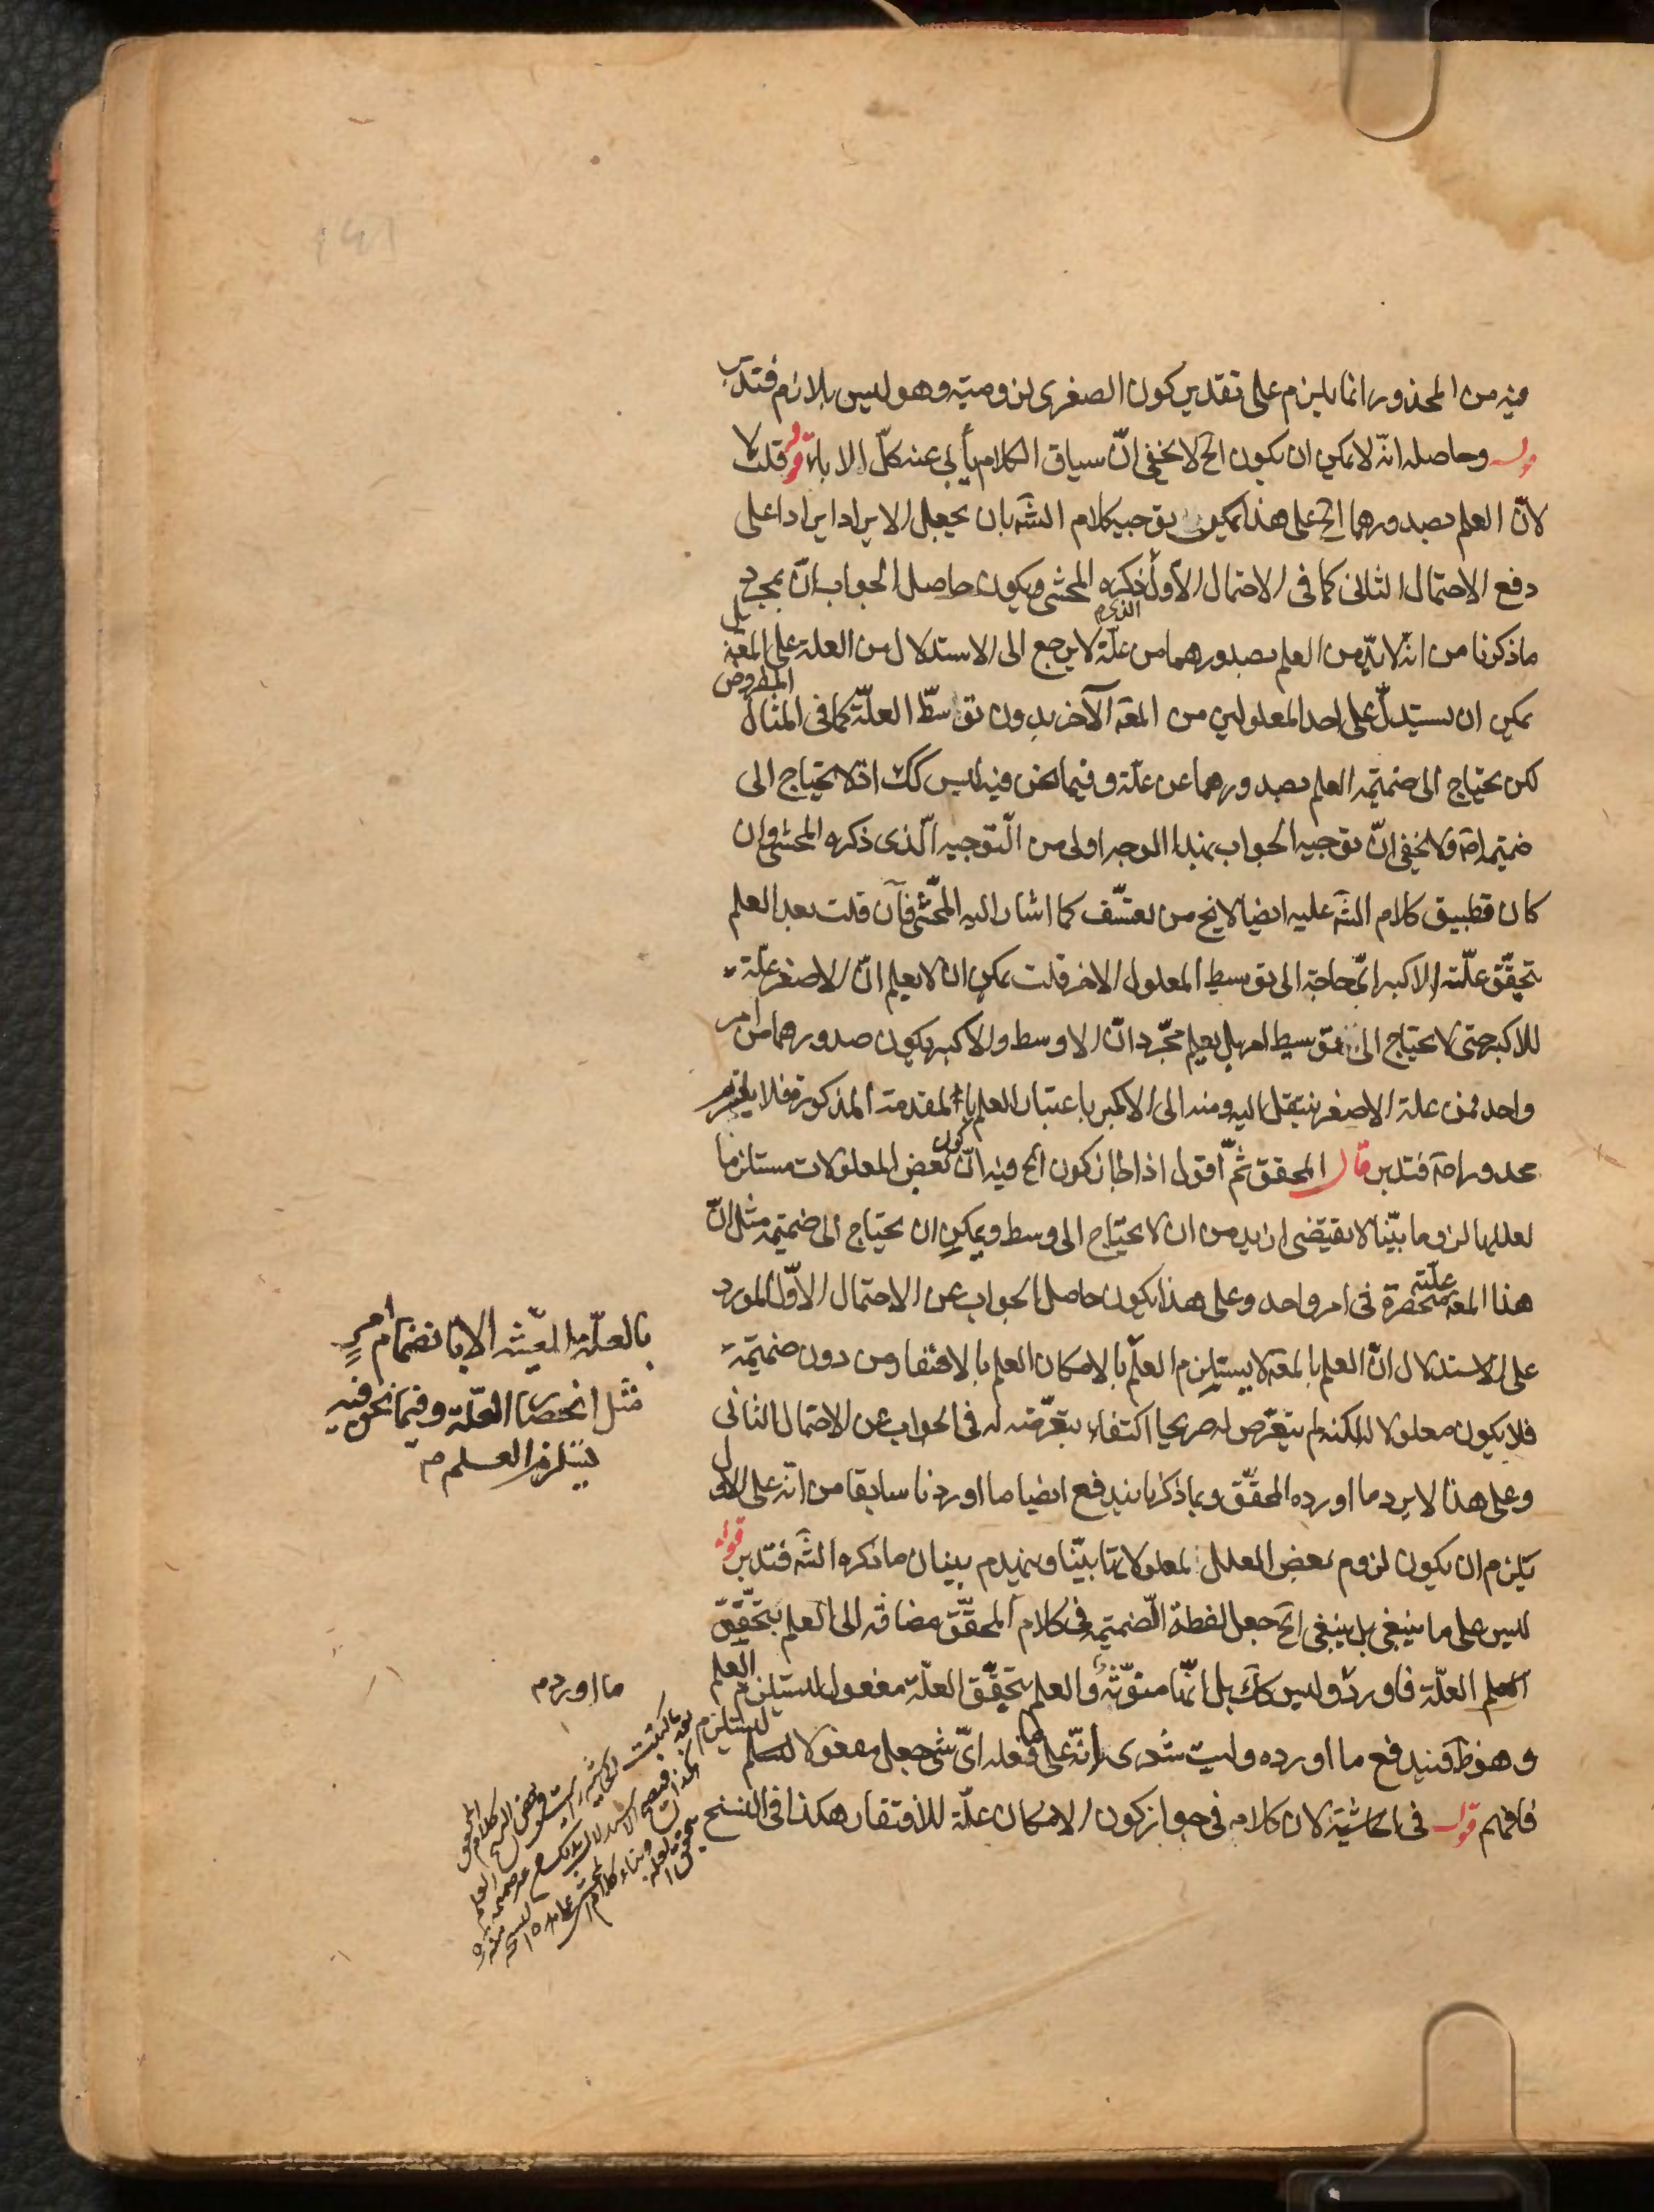 فيه من المحذور انما يلزم على تقدير كون الصغرى لزومية وهو ليس بلازم فتدبر
قوله وحاصله انه لا يمكن ان يكون الخ لا يخفى انّ سياق الكلام يأبى عنه كلّ الاباء قوله قلت لا
لانّ العلم بصدورهما الخ على هذا يمكن توجيه كلام الشه بان يجعل الايراد ايرادا على
دفع الاحتمال الثانى كما فى الاحتمال الأول الذى ذكره المحشى ويكون حاصل الجواب انّ بمجرد
ماذكرنا من انه لابدّ من العلم بصدورهما من علّة لا يرجع الى الاستدلال من العلة على المعه بل
يمكن ان يستدلّ على احد المعلولين من المعه الآخر بدون توسّط العلّة كما فى المثال المفروض
لكن يحتاج الى ضميمة العلم بصدورهما عن علّة وفيما نحن فيه ليس كك اذ لا يحتاج الى
ضميمة اصه ولا يخفى انّ توجيه الجواب بهذا الوجه اولى من التوجيه الّذى ذكره المحشى وان
كان تطبيق كلام الشه عليه ايضا لا يخ من تعسّف كما اشار اليه المحّشى فان قلت بعد العلم
بتحقّق علّة الاكبر ائّ حاجة الى توسيط المعلول الاخر قلت يمكن ان لا يعلم انّ الاصغر علّة
للاكبر حتى لا يحتاج الى توسيط امر بل يعلم مجّرد انّ الاوسط والاكبر يكون صدورهما من امر
واحد فمن علة الاصغر ينتقل اليه ومنه الى الاكبر باعتبار العلم بالمقدمة المذكورة فلا يلزم
محذور اصه فتدبر قال المحقق ثمّ اقول اذا جاز كون الخ فيه انّ كون بعض المعلولات مستلزما
لعللها لزوما بيّنا لا يقتضى ازيد من ان لا يحتاج الى وسط ويمكن ان يحتاج الى ضميمة مثل انّ
هذا المعه علّته منحصرة فى امر واحد وعلى هذا يكون حاصل الجواب عن الاحتمال الاوّل المورد
على الاستدلال انّ العلم بالمعه لا يستلزم العلم بالامكان العلم بالافتقار من دون ضميمة
فلا يكون معلولا له لكنه لم يتعّرض له صريحا اكتفاء بتعّرضه له فى الجواب عن الاحتمال الثانى
وعلى هذا لا يرد ما اورده المحقّق وبما ذكرنا يندفع ايضا ما اوردنا سابقا من انّه على الاول
يلزم ان يكون لزوم بعض العلل لمعلولاتها بيّنا وينهدم بنيان ما ذكره الشه فتدبر قوله
ليس على ما ينبغى بل ينبغى الخ جعل لفظة الضميمة فى كلام المحقّق مضافة الى العلم بتحقّق
العلّة فاورد وليس كك بل انّها منوّنة والعلم بتحقّق العلّة مفعول ليستلزم العلم
وهو ظ فيندفع ما اورده وليت شعرى انّه على ما فعله اىّ شئ جعل مفعولا ليستلزم
فافهم قوله فى الحاشية لان كلامه فى جواز كون الامكان علّة للافتقار هكذا فى النسخ
بالعلّة المعّينة الا بانضمام امرٍ
مثل انحصار العلّة وفيما نحن فيه
يستلزم العلم
ما اورد م